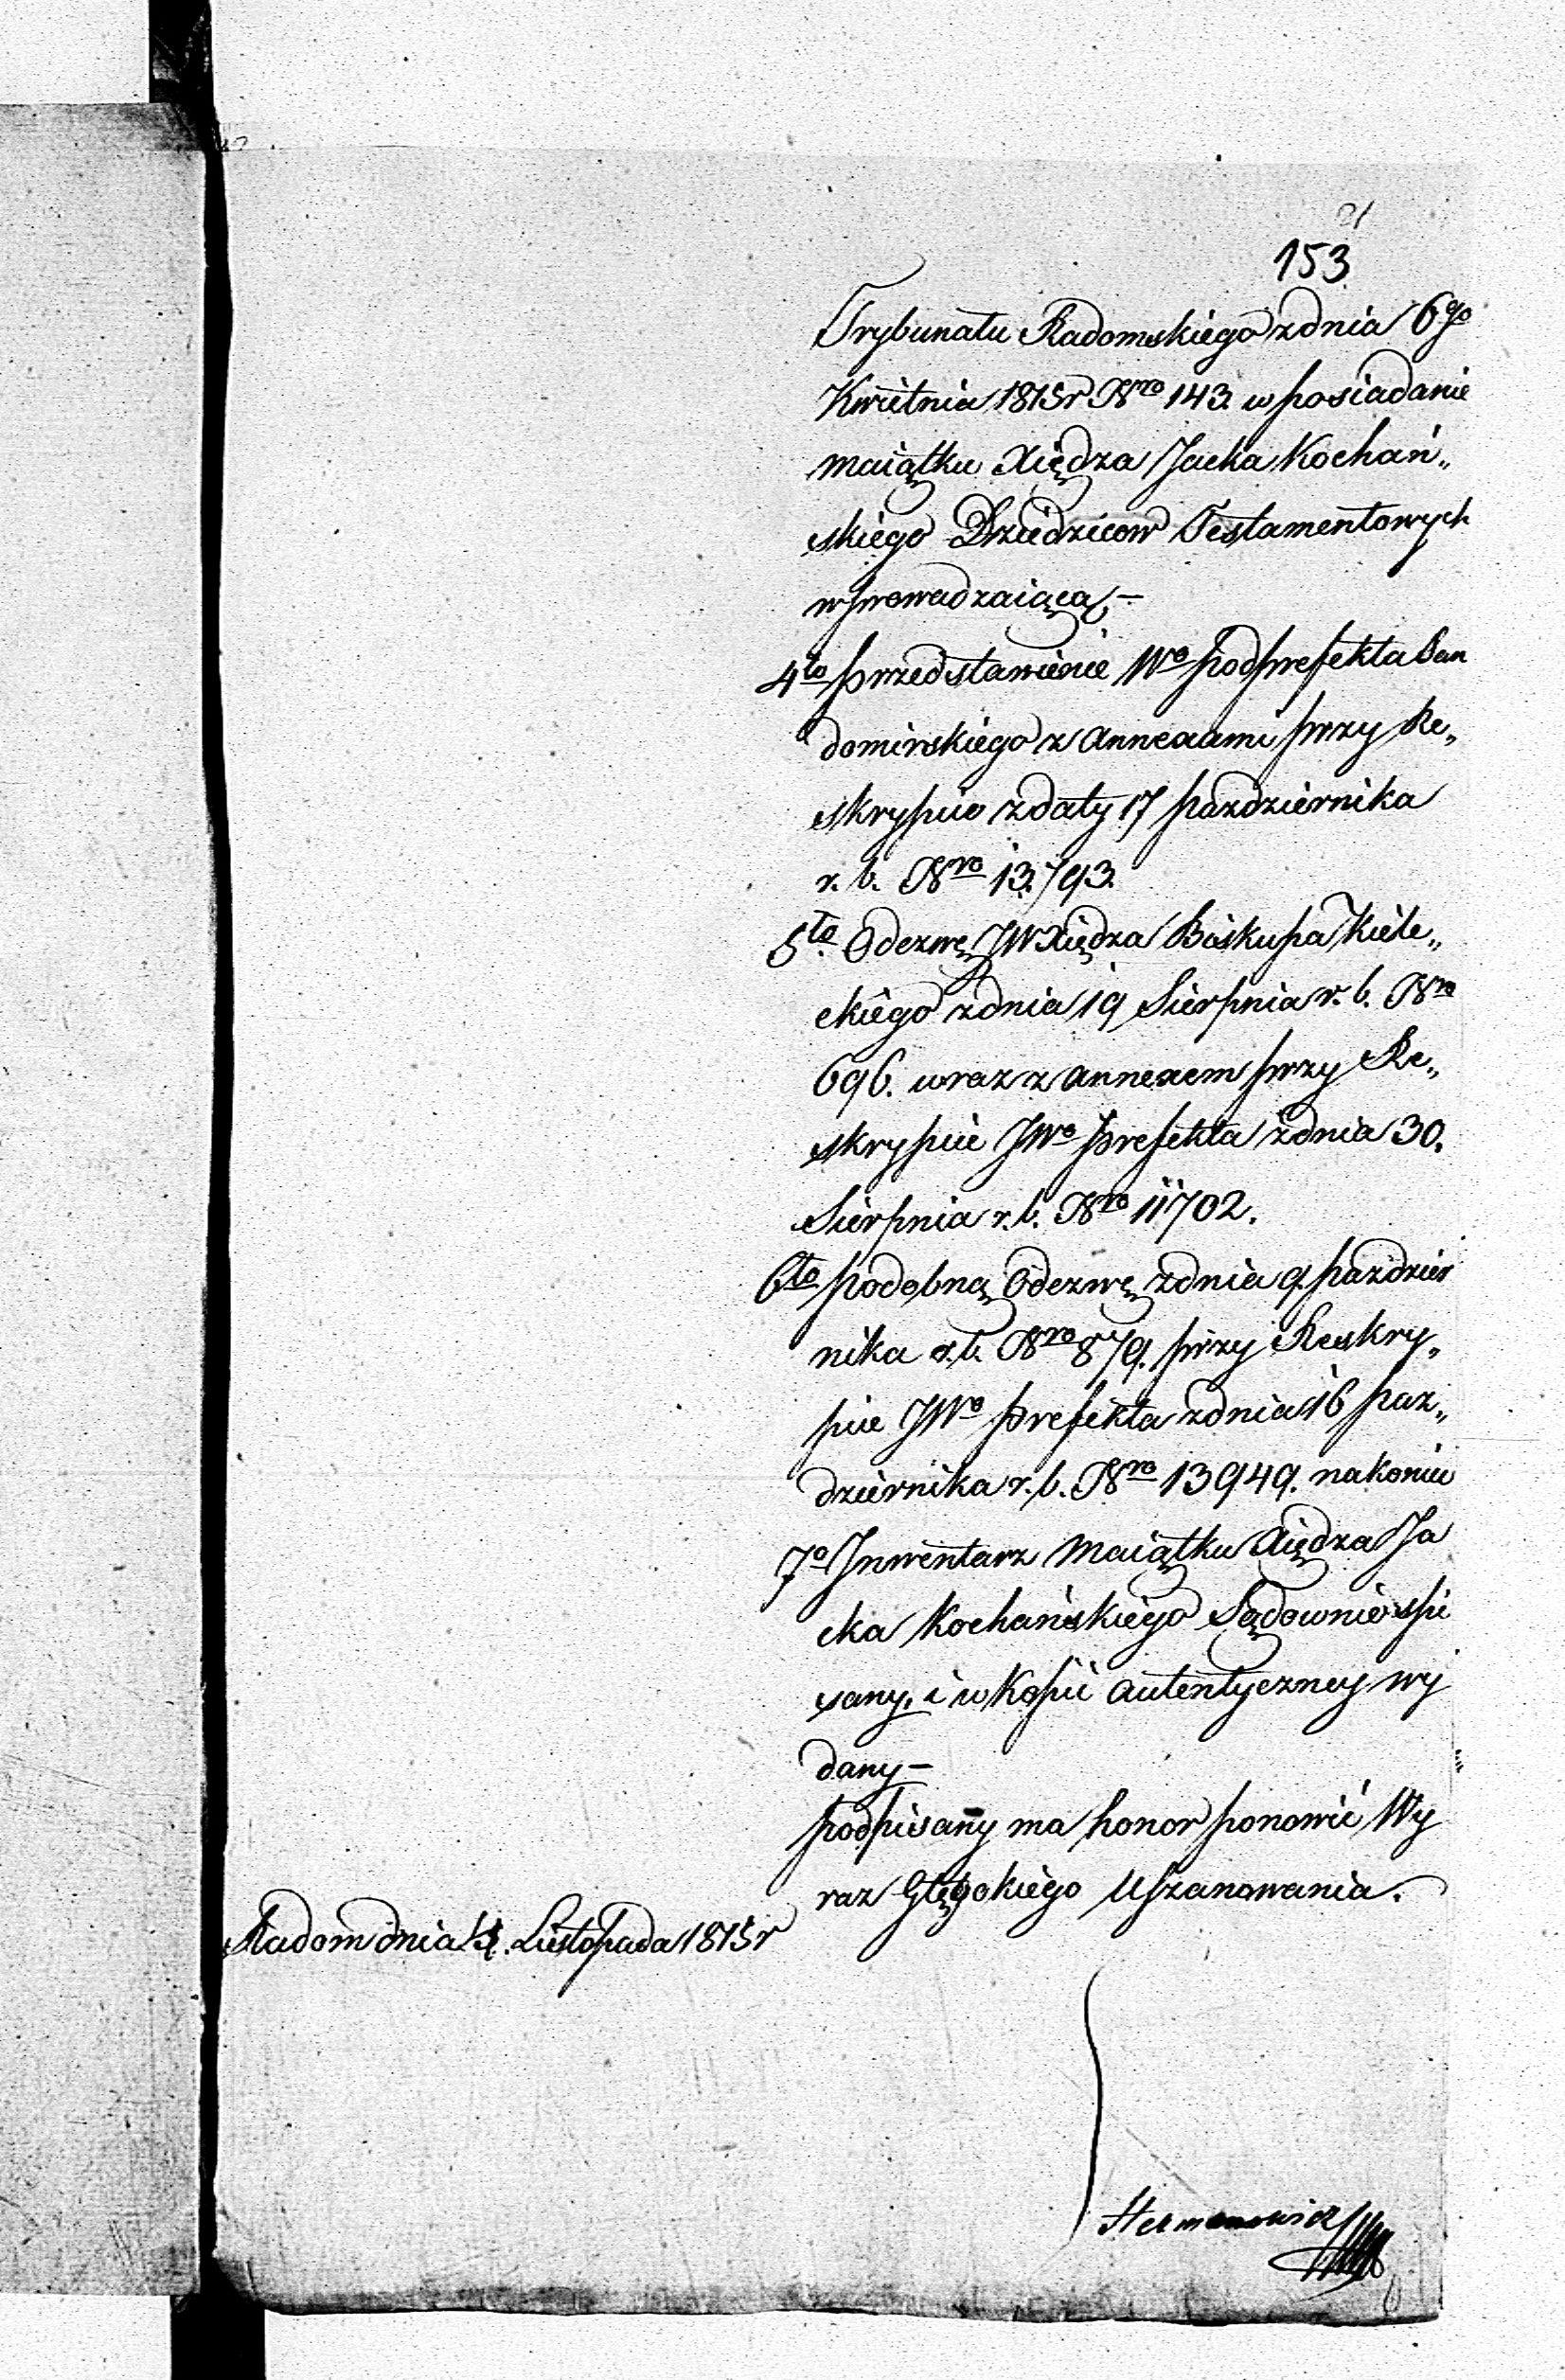 153
Trybunału Radomskiego zdnia 6go
Kwietnia 1815r Nro 143. w posiadanie
maiątku Xiędza Jacka Kochań„
skiego Dziedziców Testamentowych
wprowadzaiącą, —
4to przedstawienie Wo podprefekta San
domirskiego z annexami przy Re„
skrypcie zdaty 17 pazdziernika
r. b. Nro 13.793.
5to Odezwę JW Xiędza Biskupa Kiele„
ckiego zdnia 19 Sierpnia r. b. Nro
696. wraz z annexem przy Re„
skrypcie JWo prefekta zdnia 30.
Sierpnia r. b. Nro 11702.
6to podobną Odezwę zdnia 9. pazdzier
nika r. b. Nro 879. przy Reskry„
pcie JWo prefekta zdnia 16 paz„
dziernika r. b. Nro 13949. nakoniec
7o Jnwentarz maiątku Xiędza Ja
cka Kochańskiego Sądownie spi
sany, i w Kopii autentyczney wy
dany —
podpisany ma honor ponowić Wy
raz Głębokiego Uszanowania.
Radom dnia Listopada 1815r
Hermanowicz